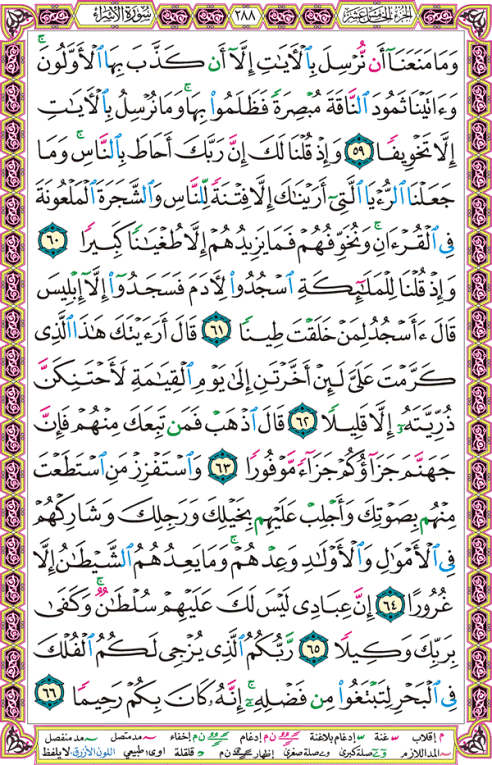 الجزء الخامس عشر ٢٨٨ سورة الإسراء
وَمَا مَنَعَنَآ أَن نُّرْسِلَ بِٱلْآيَٰتِ إِلَّآ أَن كَذَّبَ بِهَا ٱلْأَوَّلُونَ ۚ
وَءَاتَيْنَا ثَمُودَ ٱلنَّاقَةَ مُبْصِرَةً فَظَلَمُوا۟ بِهَا ۚ وَمَا نُرْسِلُ بِٱلْآيَٰتِ
إِلَّا تَخْوِيفًا ٥٩ وَإِذْ قُلْنَا لَكَ إِنَّ رَبَّكَ أَحَاطَ بِٱلنَّاسِ ۚ وَمَا
جَعَلْنَا ٱلرُّءْيَا ٱلَّتِىٓ أَرَيْنَٰكَ إِلَّا فِتْنَةً لِّلنَّاسِ وَٱلشَّجَرَةَ ٱلْمَلْعُونَةَ
فِى ٱلْقُرْءَانِ ۚ وَنُخَوِّفُهُمْ فَمَا يَزِيدُهُمْ إِلَّا طُغْيَٰنًا كَبِيرًا ٦٠
وَإِذْ قُلْنَا لِلْمَلَٰٓئِكَةِ ٱسْجُدُوا۟ لِءَادَمَ فَسَجَدُوٓا۟ إِلَّآ إِبْلِيسَ
قَالَ ءَأَسْجُدُ لِمَنْ خَلَقْتَ طِينًا ٦١ قَالَ أَرَءَيْتَكَ هَٰذَا ٱلَّذِى
كَرَّمْتَ عَلَىَّ لَئِنْ أَخَّرْتَنِ إِلَىٰ يَوْمِ ٱلْقِيَٰمَةِ لَأَحْتَنِكَنَّ
ذُرِّيَّتَهُۥٓ إِلَّا قَلِيلًا ٦٢ قَالَ ٱذْهَبْ فَمَن تَبِعَكَ مِنْهُمْ فَإِنَّ
جَهَنَّمَ جَزَآؤُكُمْ جَزَآءً مَّوْفُورًا ٦٣ وَٱسْتَفْزِزْ مَنِ ٱسْتَطَعْتَ
مِنْهُم بِصَوْتِكَ وَأَجْلِبْ عَلَيْهِم بِخَيْلِكَ وَرَجِلِكَ وَشَارِكْهُمْ
فِى ٱلْأَمْوَٰلِ وَٱلْأَوْلَٰدِ وَعِدْهُمْ ۚ وَمَا يَعِدُهُمُ ٱلشَّيْطَٰنُ إِلَّا
غُرُورًا ٦٤ إِنَّ عِبَادِى لَيْسَ لَكَ عَلَيْهِمْ سُلْطَٰنٌ ۚ وَكَفَىٰ
بِرَبِّكَ وَكِيلًا ٦٥ رَّبُّكُمُ ٱلَّذِى يُزْجِى لَكُمُ ٱلْفُلْكَ
فِى ٱلْبَحْرِ لِتَبْتَغُوا۟ مِن فَضْلِهِۦٓ ۚ إِنَّهُۥ كَانَ بِكُمْ رَحِيمًا ٦٦
م إقلاب غنة إدغام بلاغنة ن م إدغام ن م إخفاء مد متصل مد منفصل
المد اللازم صلة كبرى صلة صغرى إظهار ن م قلقلة اوى: طبيعي اللون الأزرق: لا يلفظ